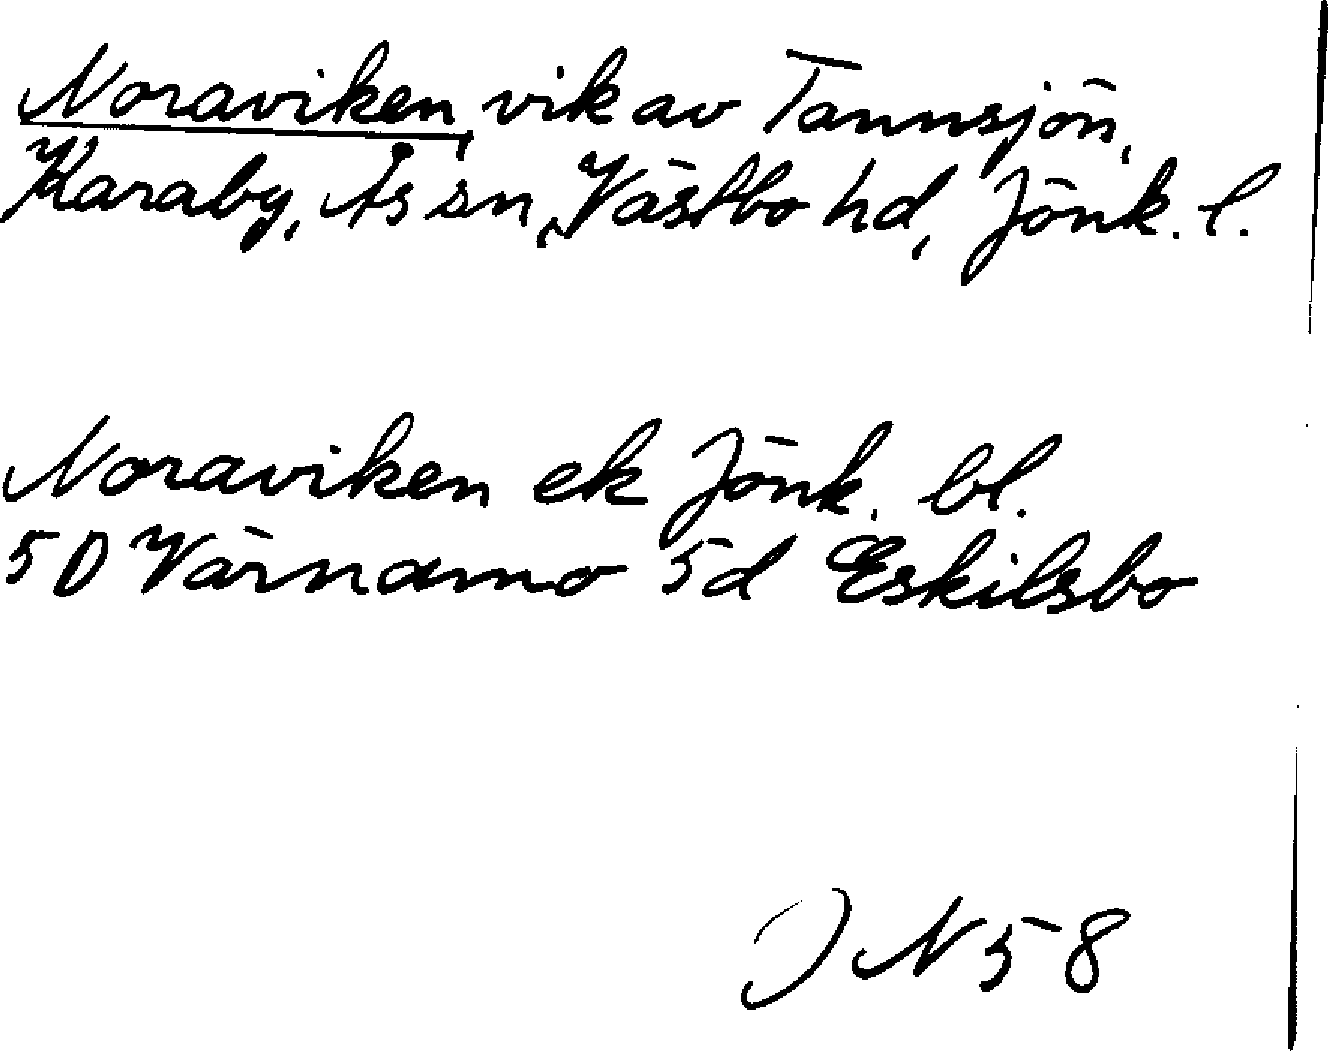 Noraviken, vik av Tannsjön,
Karaby, Ås sn, Västbo hd, Jönk. l.
Noraviken ek Jönk. bl.
5D Värnamo 5d Eskilsbo
JN 58